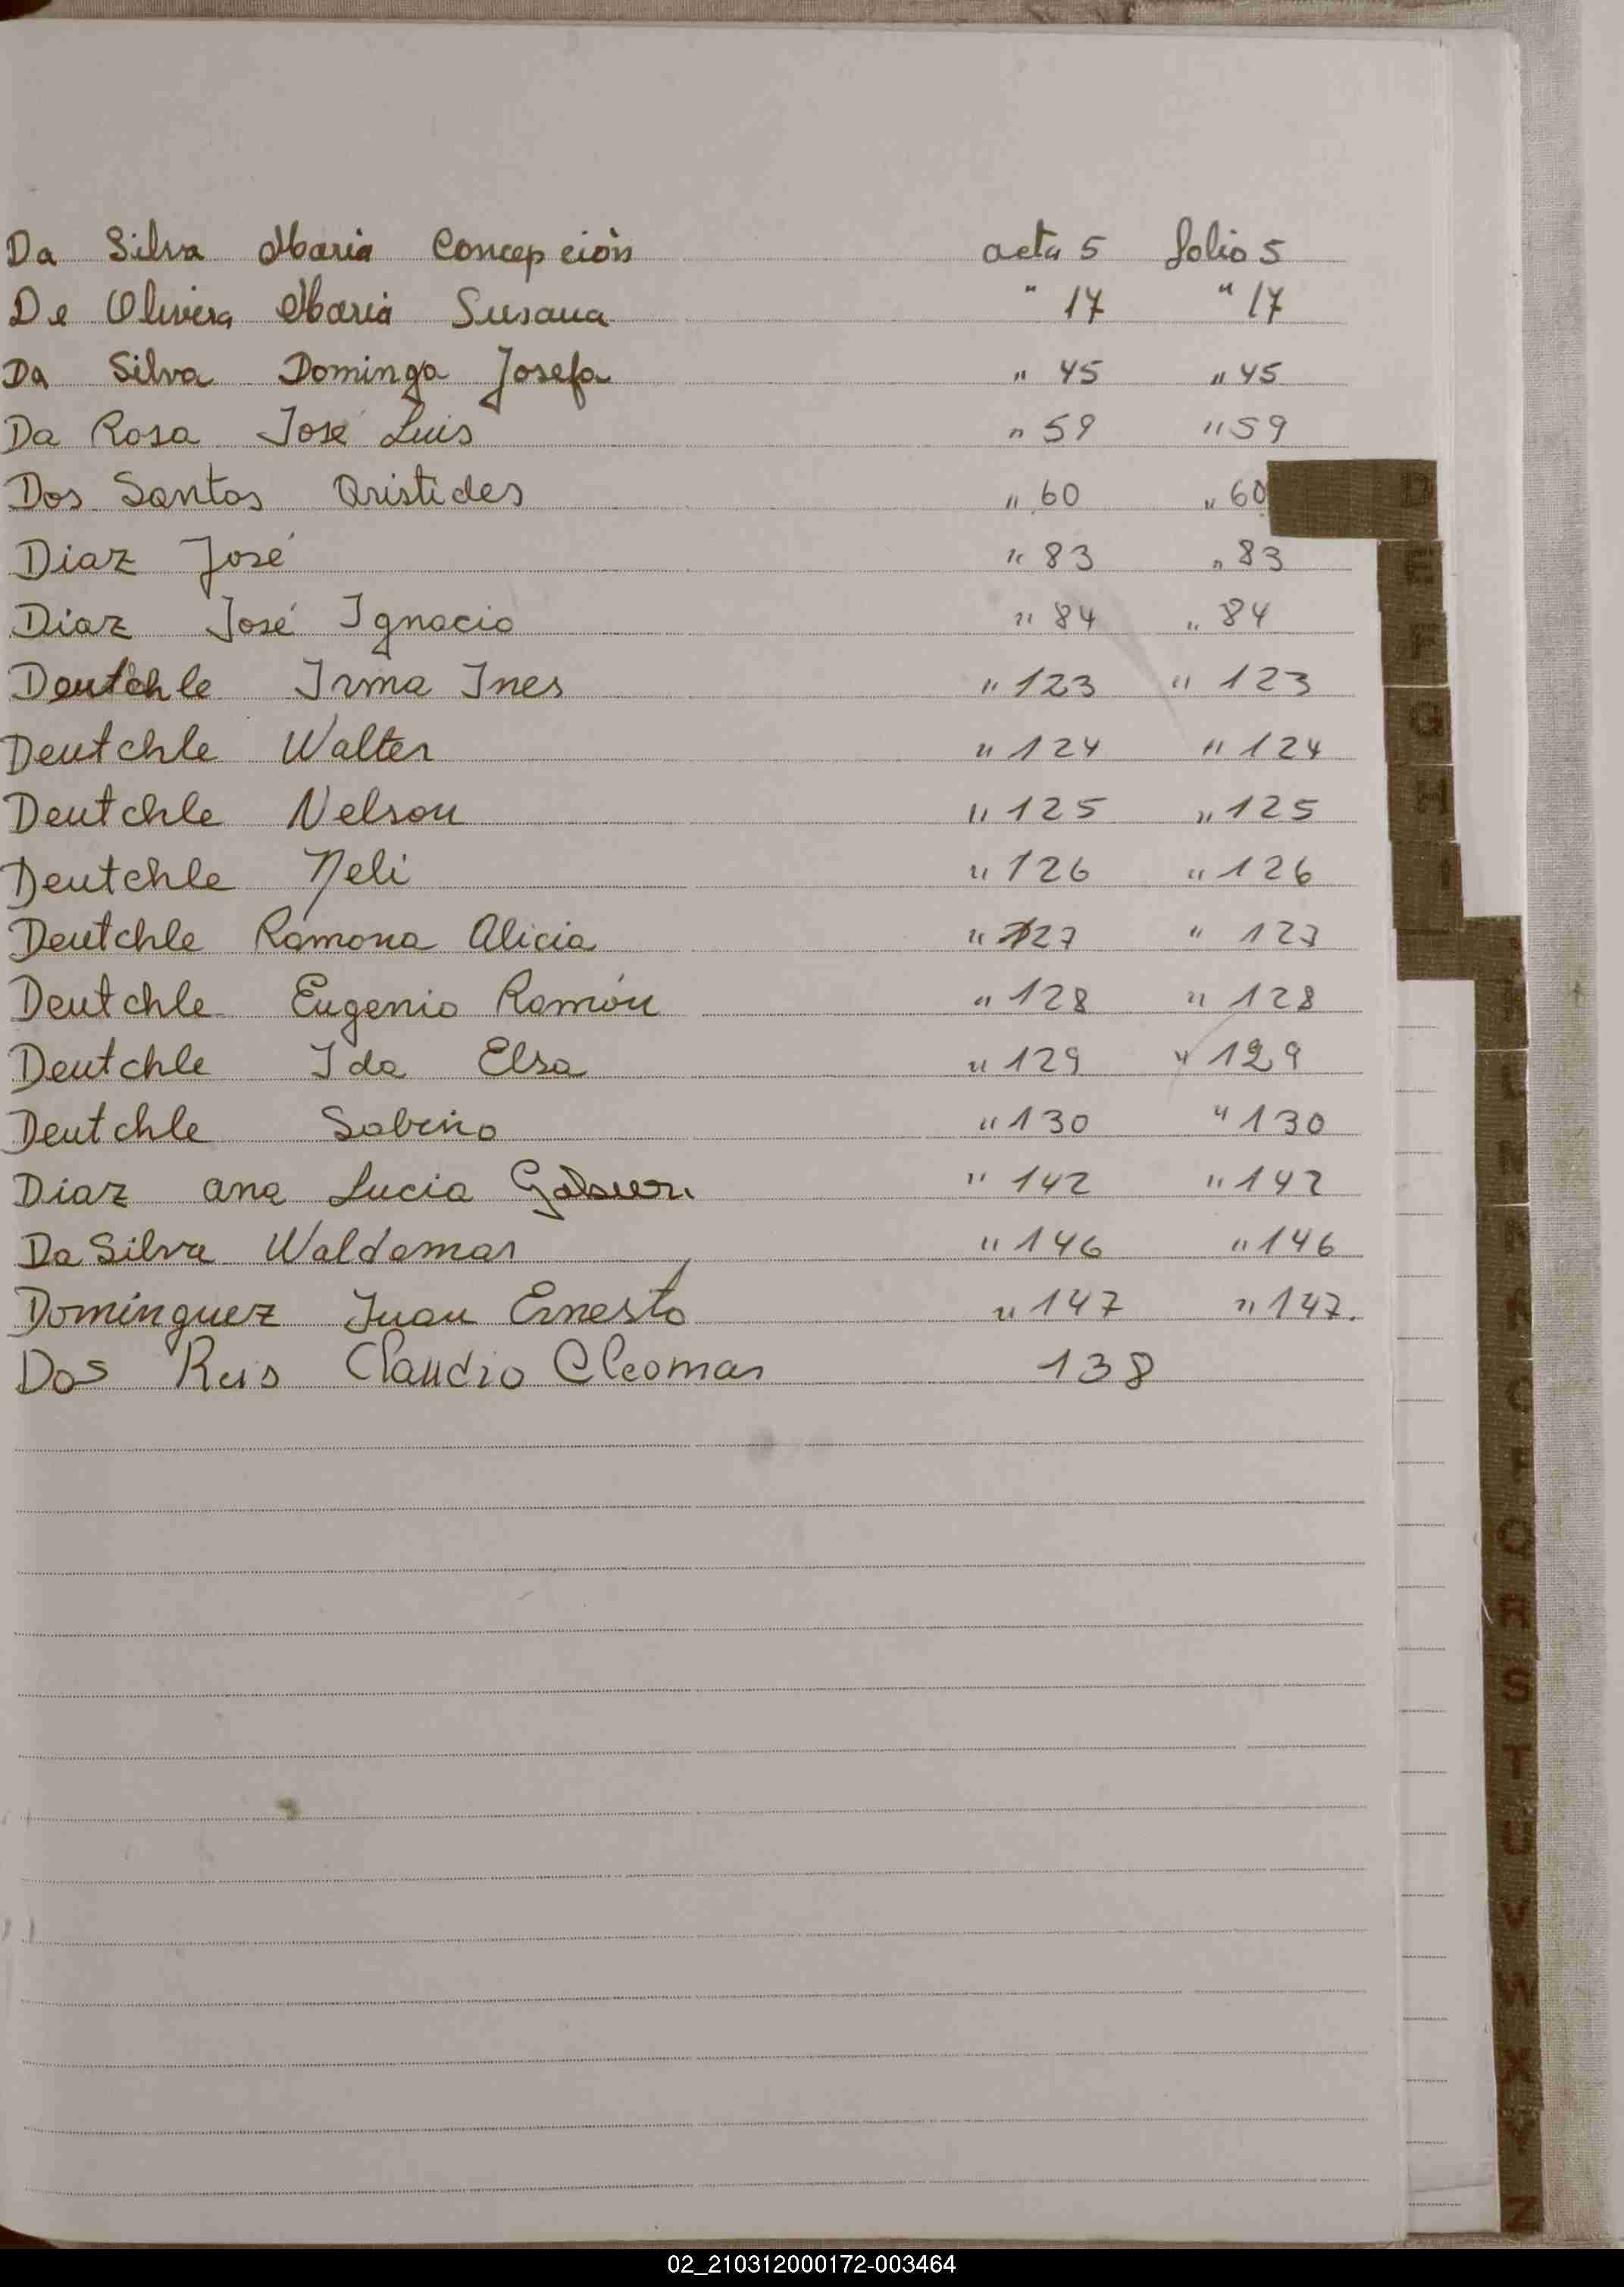 Da Silva Maria Concepción acta 5 folio 5
De Olivera Maria Susana " 17 " 17
Da Silva Dominga Josefa " 45 " 45
Da Rosa José Luis " 59 " 59
Dos Santos Aristides " 60 " 60
D
Diaz José " 83 " 83
E
Diaz José Ignacio " 84 " 84
F
Deutchle Irma Ines " 123 " 123
G
Deutchle Walter " 124 " 124
Deutchle Nelson " 125 " 125
H
Deutchle Neli " 126 " 126
I
Deutchle Ramona Alicia " 127 " 127
Deutchle Eugenio Ramón " 128 " 128
Deutchle Ida Elsa " 129 " 129
L
Deutchle Sabino " 130 " 130
Diaz ana Lucia " 142 " 142
Da Silva Waldemar " 146 " 146
Domínguez Juan Ernesto " 147 " 147.
Dos Reis Claudio Cleomar 138
O
P
Q
R
S
T
U
V
W
X
Y
Z
02_210312000172-003464